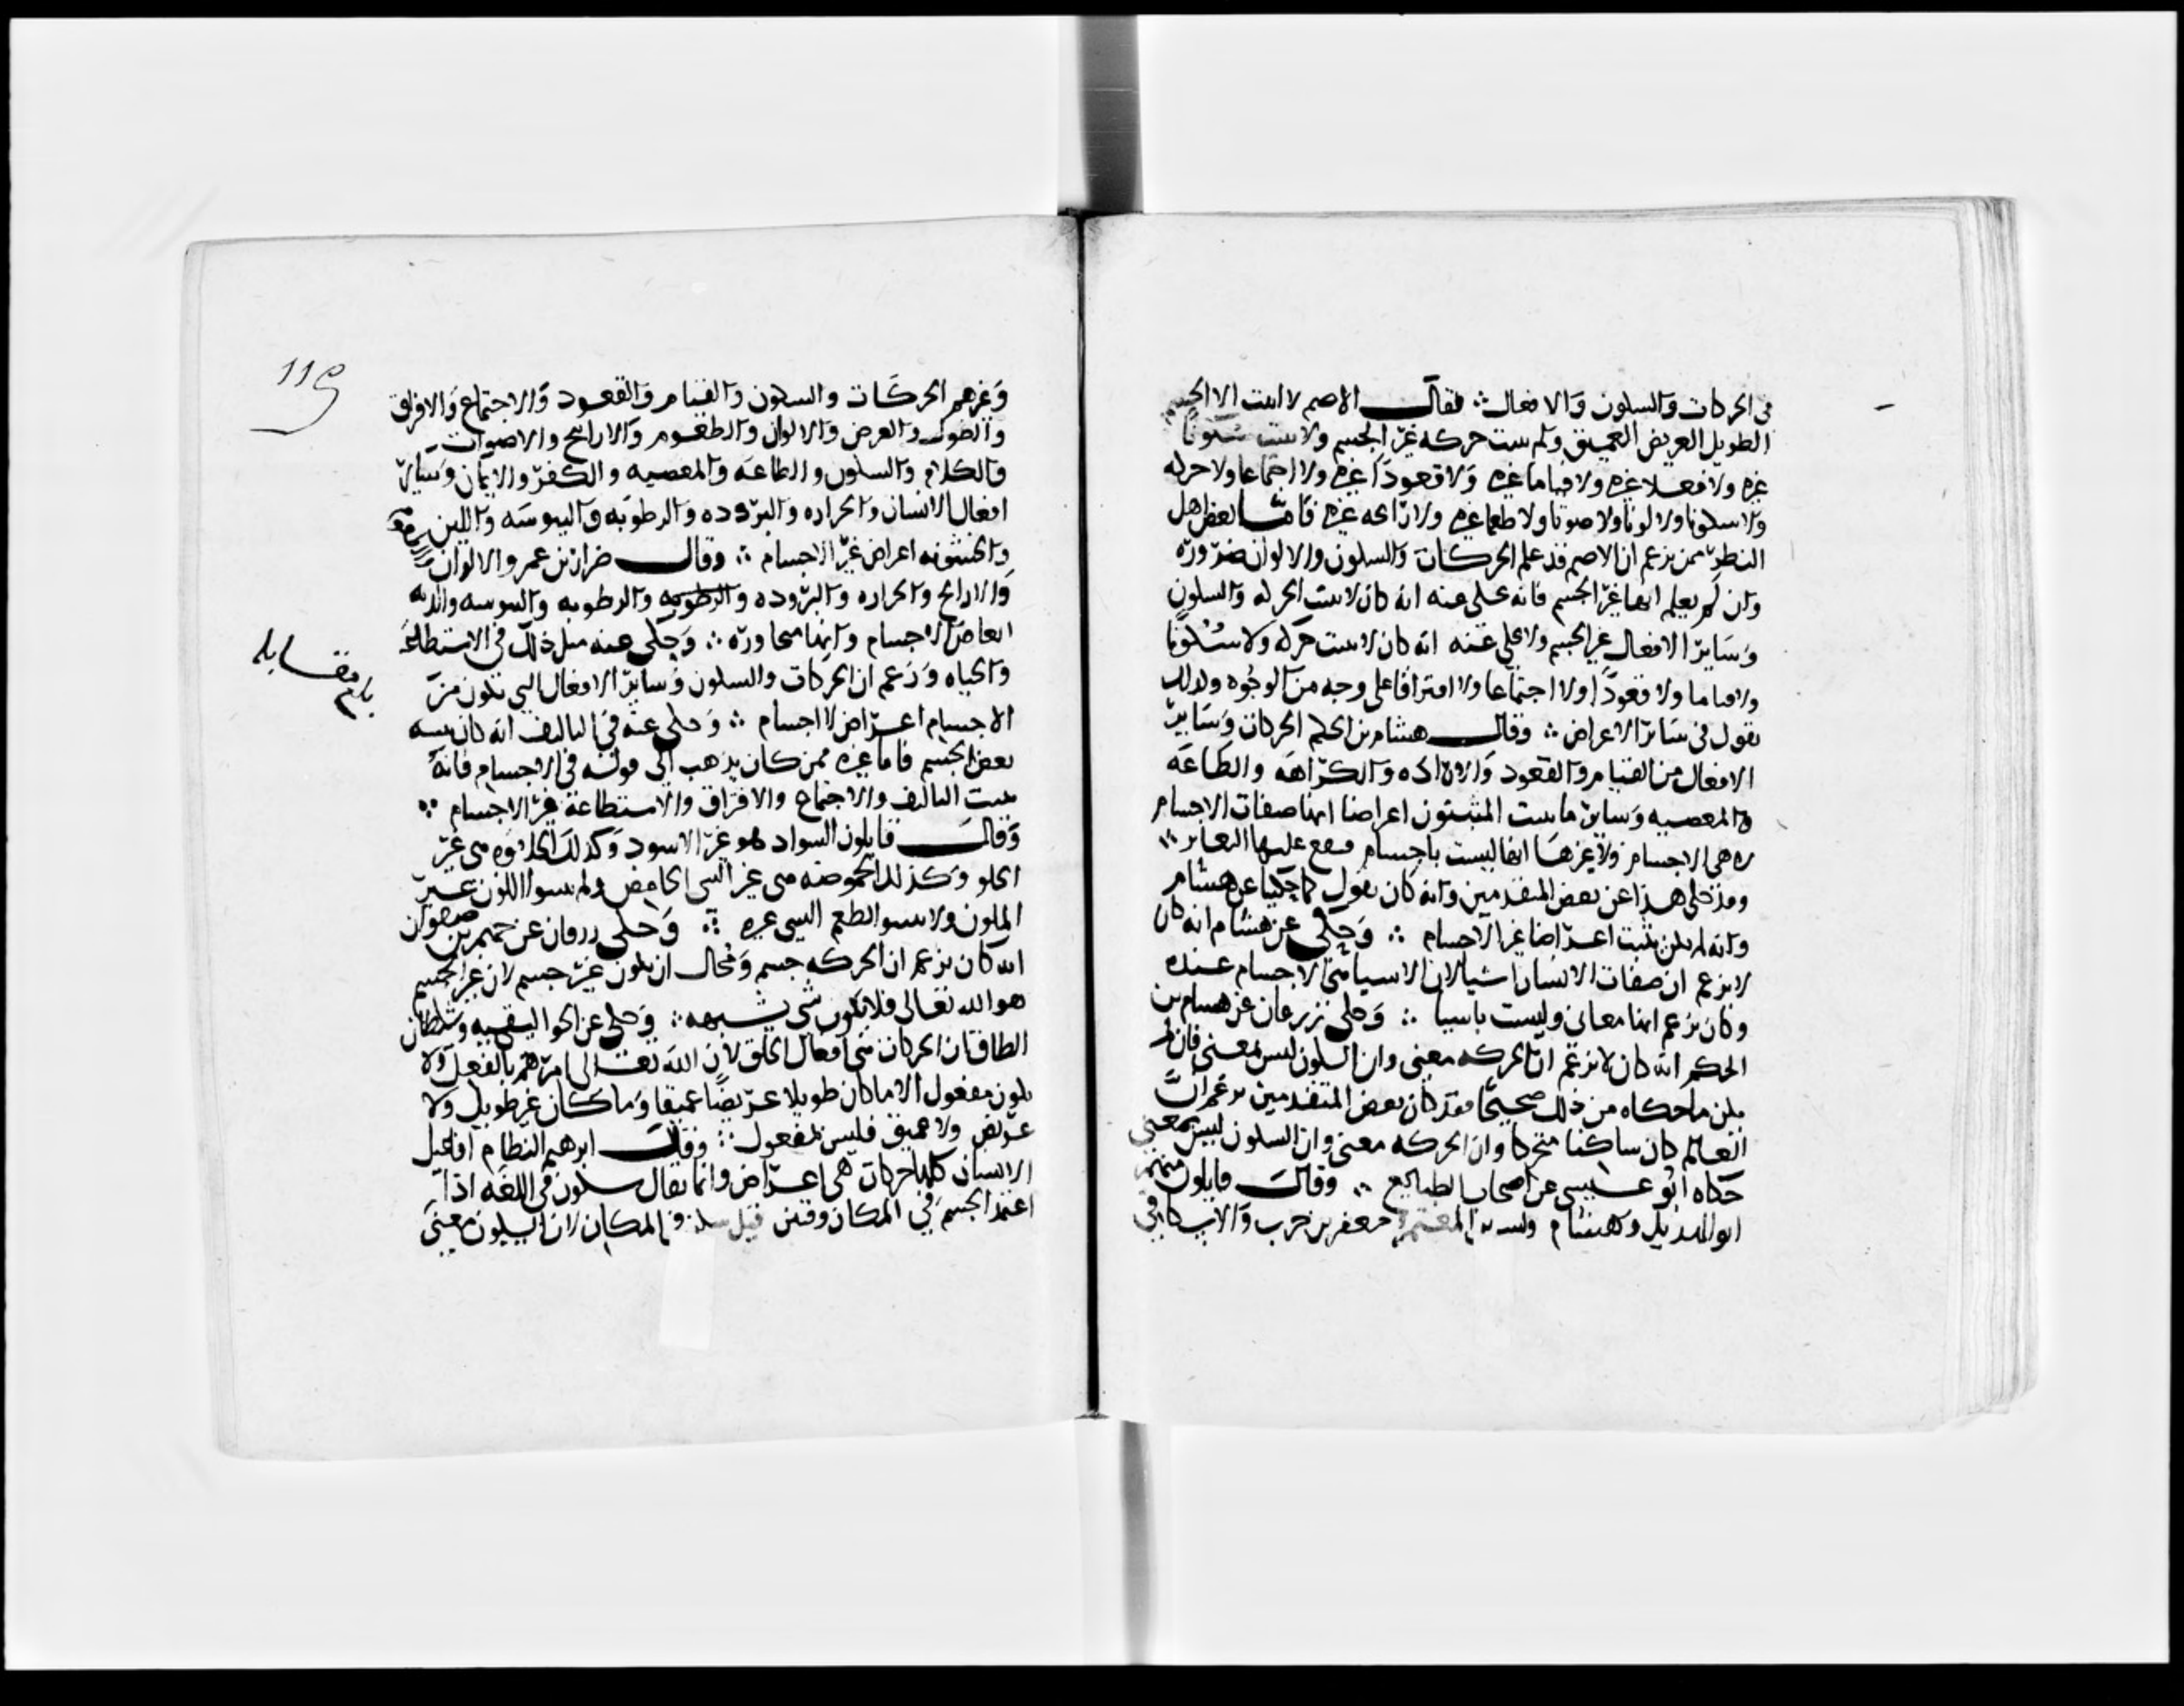 في الحركات والسكون والافعال ∴ فقال الاصم لا اثبت الا الجسم
الطويل العريض العميق ولم يثبت حركه غير الجسم ولا يثبت سكونا
غيره ولا فعلا غيره ولا قياما غيره ولا قعودا غيره ولا اجتماعا ولا حركه
ولا سكونا ولا لونا ولا صوتا ولا طعما غيره ولا رائحه غيره فاما بعض اهل
النظر ممن يزعم ان الاصم قد علم الحركات والسكون والالوان ضروره
وان لم يعلم انها غير الجسم فانه يحكى عنه انه كان لا يثبت الحركه والسكون
وسائر الافعال غير الجسم ولا يحكى عنه انه كان لا يثبت حركه ولا سكونا
ولا قياما ولا قعودا ولا اجتماعا ولا افتراقا على وجه من الوجوه وكذلك
يقول في سائر الاعراض ∴ وقال هشام بن الحكم الحركات وسائر
الافعال من القيام والقعود والاراده والكراهه والطاعه
والمعصيه وسائر ما يثبت المثبتون اعراضا انها صفات الاجسام
لا هي الاجسام ولا غيرها انها ليست باجسام فيقع عليها التغاير ∴
وقد حكى هذا عن بعض المتقدمين وانه كان يقول كما حكينا عن هشام
وانه لم يكن يثبت اعراضا غير الاجسام ∴ وحكي عن هشام انه كان
لا يزعم ان صفات الانسان اشيا لان الاشيا هي الاجسام عنده
وكان يزعم انها معاني وليست باشيا ∴ وحكى زرقان عن هشام بن
الحكم انه كان يزعم ان الحركه معنى وان السكون ليس بمعنى فان لم
يكن ما حكاه من ذلك صحيحا فقد كان بعض المتقدمين يزعم ان
العالم كان ساكنا متحركا وان الحركه معنى وان السكون ليس بمعنى
حكاه ابو عيسى عن اصحاب الطبائع ∴ وقال قايلون منهم
ابو الهذيل وهشام وبشر بن المعتمر وجعفر بن حرب والاسكافي
119
وغيرهم الحركات والسكون والقيام والقعود والاجتماع والافتراق
والطول والعرض والالوان والطعوم والارايح والاصوات
والكلام والسكوت والطاعه والمعصيه والكفر والايمان وسائر
افعال الانسان والحراره والبروده والرطوبه واليبوسه واللين
والخشونه اعراض غير الاجسام ∴ وقال ضرار بن عمرو الالوان والطعوم
والارايح والحراره والبروده والرطوبه والرطوبه واليبوسه والزنه
ابعاض الاجسام وانها متجاوره ∴ وحكي عنه مثل ذلك في الاستطاعه
والحياه وزعم ان الحركات والسكون وسائر الافعال التي تكون من
الاجسام اعراض لا اجسام ∴ وحكى عنه في التاليف انه كان يثبته
بعض الجسم فاما غيره ممن كان يذهب الى قوله في الاجسام فانه
يثبت التاليف والاجتماع والافتراق والاستطاعة غير الاجسام ∴
وقال قايلون السواد هو غير الاسود وكذلك الحلاوه هي غير
الحلو وكذلك الحموضه هي غير الشي الحامض ولم يثبتوا اللون غير
الملون ولا يثبتوا الطعم الشي غيره ∴ وحكى زرقان عن جهم بن صفوان
انه كان يزعم ان الحركه جسم ومحال ان يكون غير جسم لان غير الجسم
هو الله تعالى فلا يكون شي يشبهه ∴ وحكى عن الجواليقيه وشيطان
الطاق ان الحركات هي افعال الخلق لان الله تعالى امرهم بالفعل ولا
يكون مفعول الا ما كان طويلا عريضا عميقا وما كان غير طويل ولا
عريض ولا عميق فليس بمفعول ∴ وقال ابرهيم النظام افاعيل
الانسان كلها حركات هي اعراض وانما يقال سكون في اللغه اذا
اعتمد الجسم في المكان وقتين قيل سكن في المكان لان السكون معنى
بلغ مقابله